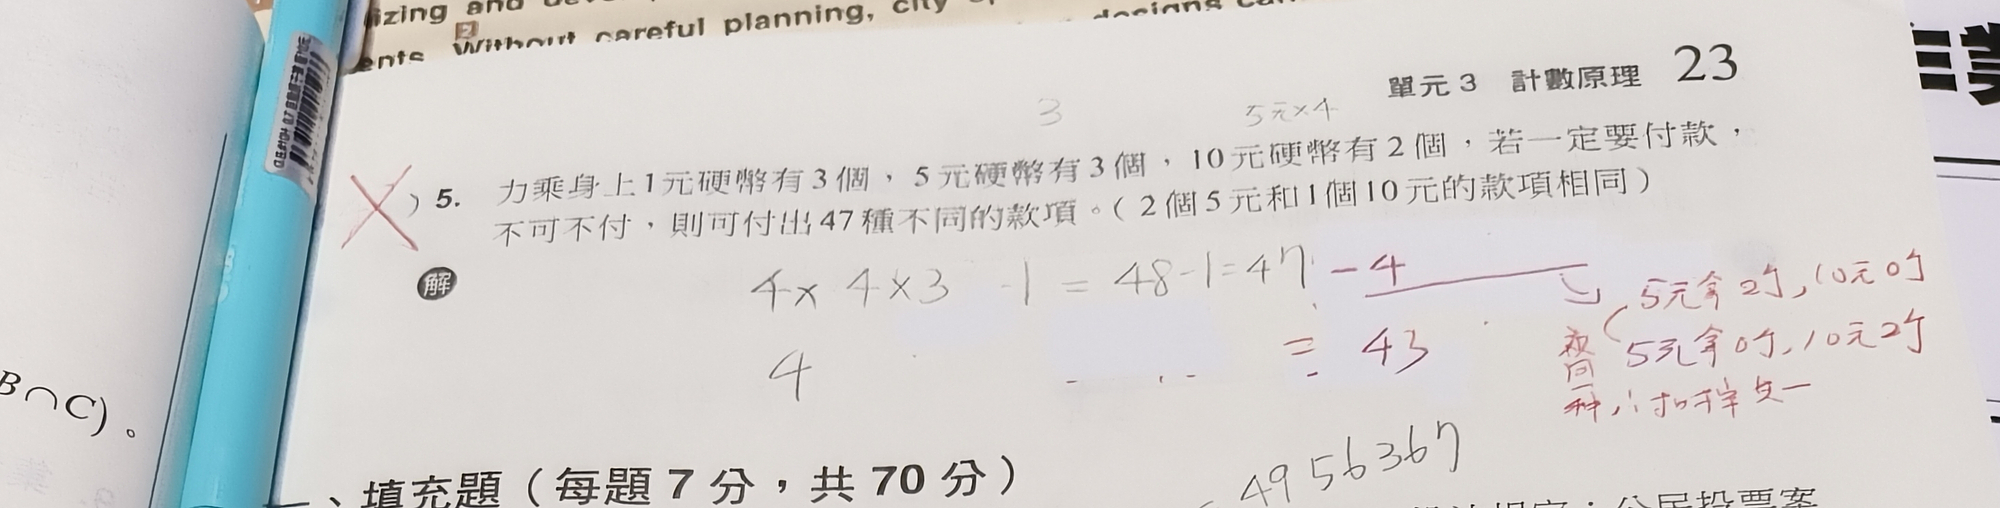 izing and
ents. Without careful planning, city
designs
2
單元 3 計數原理 23
3
5元×4
) 5. 力乘身上1元硬幣有3個，5元硬幣有3個，10元硬幣有2個，若一定要付款，
不可不付，則可付出47種不同的款項。(2個5元和1個10元的款項相同)
解
4× 4×3 -1 = 48-1=47 -4
= 43
4
5元拿2个,10元0个
5元拿0个,10元2个
同
种
B∩C)。
、填充題（每題 7 分，共 70 分）
4956367
：公民投票案